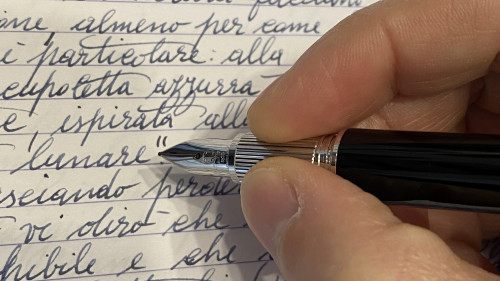 ne, almeno per come
i particolare: alla
cupoletta azzurra
e, ispirata alla
lunare"
sciando perde
vi dirò che
hibile e che